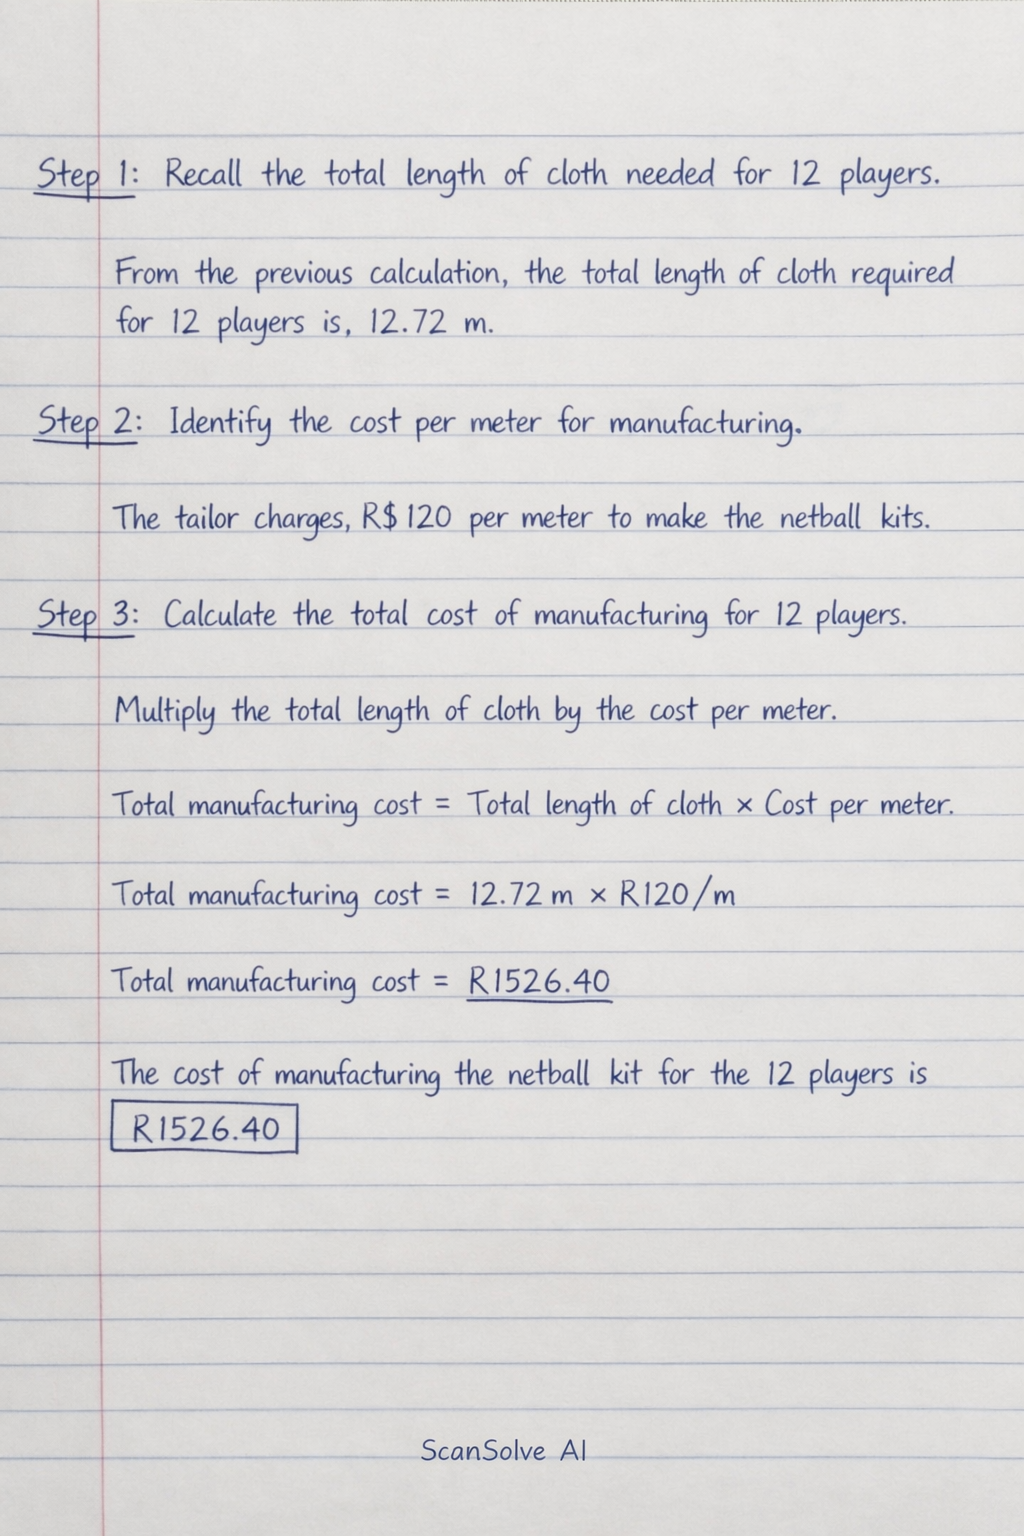 Step 1: Recall the total length of cloth needed for 12 players.
From the previous calculation, the total length of cloth required
for 12 players is, 12.72 m.
Step 2: Identify the cost per meter for manufacturing.
The tailor charges, R$120 per meter to make the netball kits.
Step 3: Calculate the total cost of manufacturing for 12 players.
Multiply the total length of cloth by the cost per meter.
Total manufacturing cost = Total length of cloth × Cost per meter.
Total manufacturing cost = 12.72 m × R120/m
Total manufacturing cost = R1526.40
The cost of manufacturing the netball kit for the 12 players is
R1526.40
ScanSolve AI